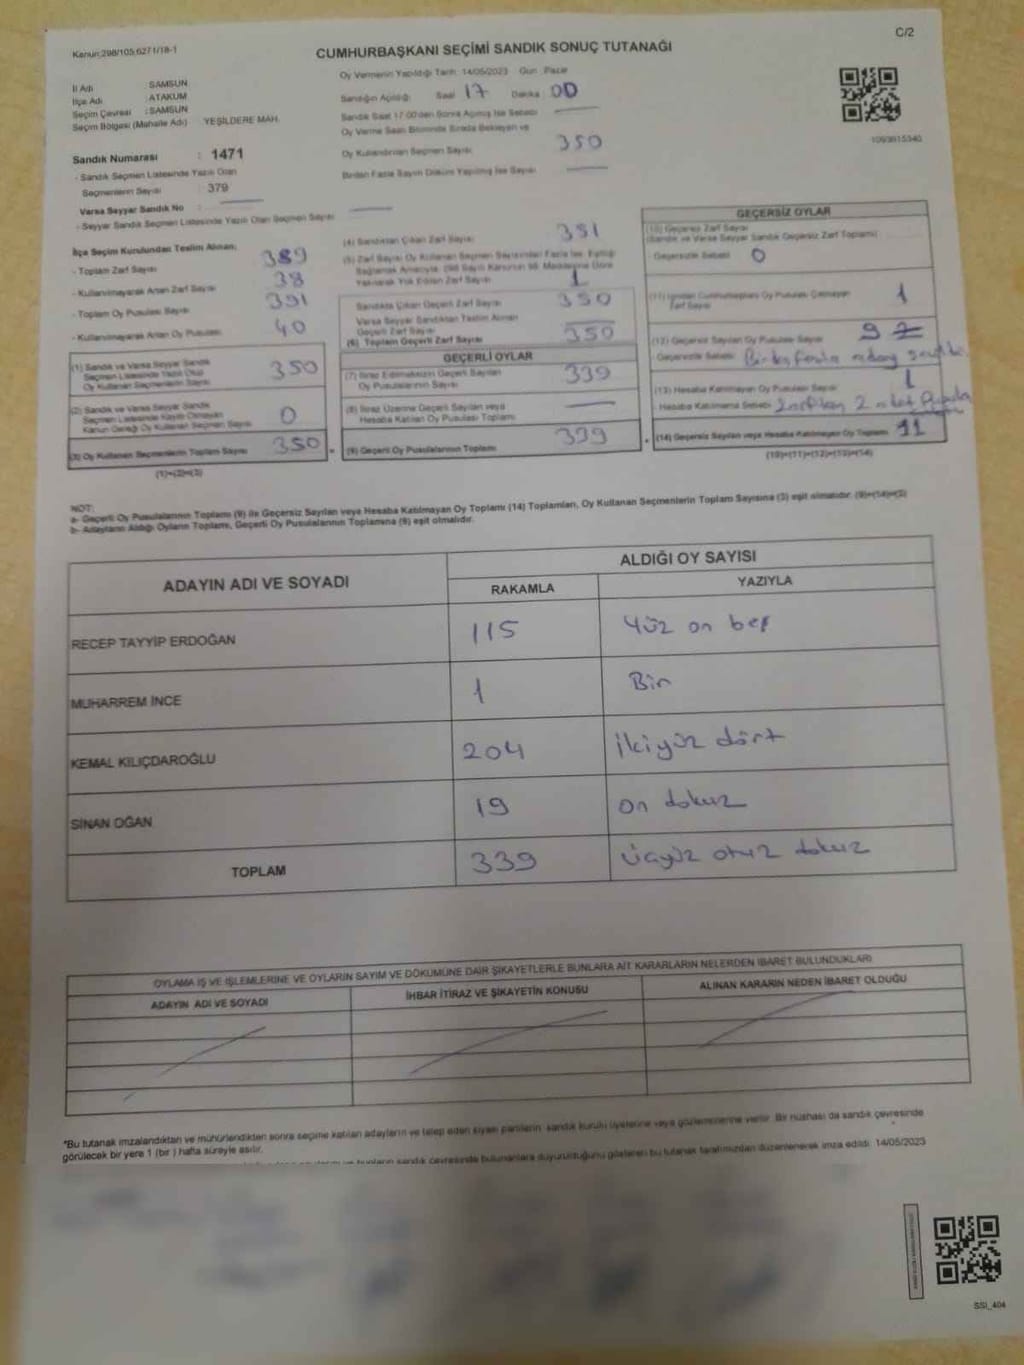 Kanun:298/105,6271/18-1
C/2
CUMHURBAŞKANI SEÇİMİ SANDIK SONUÇ TUTANAĞI
İl Adı : SAMSUN
İlçe Adı : ATAKUM
Seçim Çevresi : SAMSUN
Seçim Bölgesi (Mahalle Adı) YEŞİLDERE MAH.
Sandık Numarası : 1471
- Sandık Seçmen Listesinde Yazılı Olan
Seçmenlerin Sayısı : 379
Varsa Seyyar Sandık No :
- Seyyar Sandık Seçmen Listesinde Yazılı Olan Seçmen Sayısı
Oy Vermenin Yapıldığı Tarih: 14/05/2023 Gün : Pazar
Sandığın Açıldığı: Saat 17 Dakika : 00
Sandık Saat 17:00'den Sonra Açılmış İse Sebebi
Oy Verme Saati Bitiminde Sırada Bekleyen ve
Oy Kullandırılan Seçmen Sayısı 350
Birden Fazla Sayım Döküm Yapılmış İse Sayısı
İlçe Seçim Kurulundan Teslim Alınan;
- Toplam Zarf Sayısı 389
- Kullanılmayarak Artan Zarf Sayısı 38
- Toplam Oy Pusulası Sayısı 391
- Kullanılmayarak Artan Oy Pusulası 40
(1) Sandık ve Varsa Seyyar Sandık
Seçmen Listesinde Yazılı Olup
Oy Kullanan Seçmenlerin Sayısı 350
(2) Sandık ve Varsa Seyyar Sandık
Seçmen Listesinde Kayıtlı Olmayan
Kanun Gereği Oy Kullanan Seçmen Sayısı 0
(3) Oy Kullanan Seçmenlerin Toplam Sayısı 350
(1)+(2)=(3)
(4) Sandıktan Çıkan Zarf Sayısı 351
(5) Zarf Sayısı Oy Kullanan Seçmen Sayısından Fazla İse, Eşitliği
Sağlamak Amacıyla (298 Sayılı Kanunun 98. Maddesine Göre
Yakılarak Yok Edilen Zarf Sayısı 1
Sandıkta Çıkan Geçerli Zarf Sayısı 350
Varsa Seyyar Sandıktan Teslim Alınan
Geçerli Zarf Sayısı
(6) Toplam Geçerli Zarf Sayısı 350
GEÇERLİ OYLAR
(7) İtiraz Edilmeksizin Geçerli Sayılan
Oy Pusulalarının Sayısı 339
(8) İtiraz Üzerine Geçerli Sayılan veya
Hesaba Katılan Oy Pusulası Toplamı
(9) Geçerli Oy Pusulalarının Toplamı 339
GEÇERSİZ OYLAR
(10) Geçersiz Zarf Sayısı
(Sandık ve Varsa Seyyar Sandık Geçersiz Zarf Toplamı)
Geçersizlik Sebebi 0
Zarf Sayısı 1
(12) Geçersiz Sayılan Oy Pusulası Sayısı 9
- Geçersizlik Sebebi
(13) Hesaba Katılmayan Oy Pusulası Sayısı 1
- Hesaba Katılmama Sebebi
(14) Geçersiz Sayılan veya Hesaba Katılmayan Oy Toplamı 11
(10)+(11)+(12)+(13)=(14)
NOT:
a- Geçerli Oy Pusulalarının Toplamı (9) ile Geçersiz Sayılan veya Hesaba Katılmayan Oy Toplamı (14) Toplamları, Oy Kullanan Seçmenlerin Toplam Sayısına (3) eşit olmalıdır. (9)+(14)=(3)
b- Adayların Aldığı Oyların Toplamı, Geçerli Oy Pusulalarının Toplamına (9) eşit olmalıdır.
ADAYIN ADI VE SOYADI ALDIĞI OY SAYISI
RAKAMLA YAZIYLA
RECEP TAYYİP ERDOĞAN 115 Yüz on beş
MUHARREM İNCE 1 Bir
KEMAL KILIÇDAROĞLU 204 İkiyüz dört
SİNAN OĞAN 19 on dokuz
TOPLAM 339 üçyüz otuz dokuz
OYLAMA İŞ VE İŞLEMLERİNE VE OYLARIN SAYIM VE DÖKÜMÜNE DAİR ŞİKAYETLERLE BUNLARA AİT KARARLARIN NELERDEN İBARET BULUNDUKLARI
ADAYIN ADI VE SOYADI İHBAR İTİRAZ VE ŞİKAYETİN KONUSU ALINAN KARARIN NEDEN İBARET OLDUĞU
*Bu tutanak imzalandıktan ve mühürlendikten sonra seçime katılan adayların ve talep eden siyasi partilerin sandık kurulu üyelerine veya gözlemcilerine verilir. Bir nüshası da sandık çevresinde
görülecek bir yere 1 (bir) hafta süreyle asılır.
sandık çevresinde bulunanlara duyurulduğunu gösteren bu tutanak tarafımızdan düzenlenerek imza edildi. 14/05/2023
SSI_404